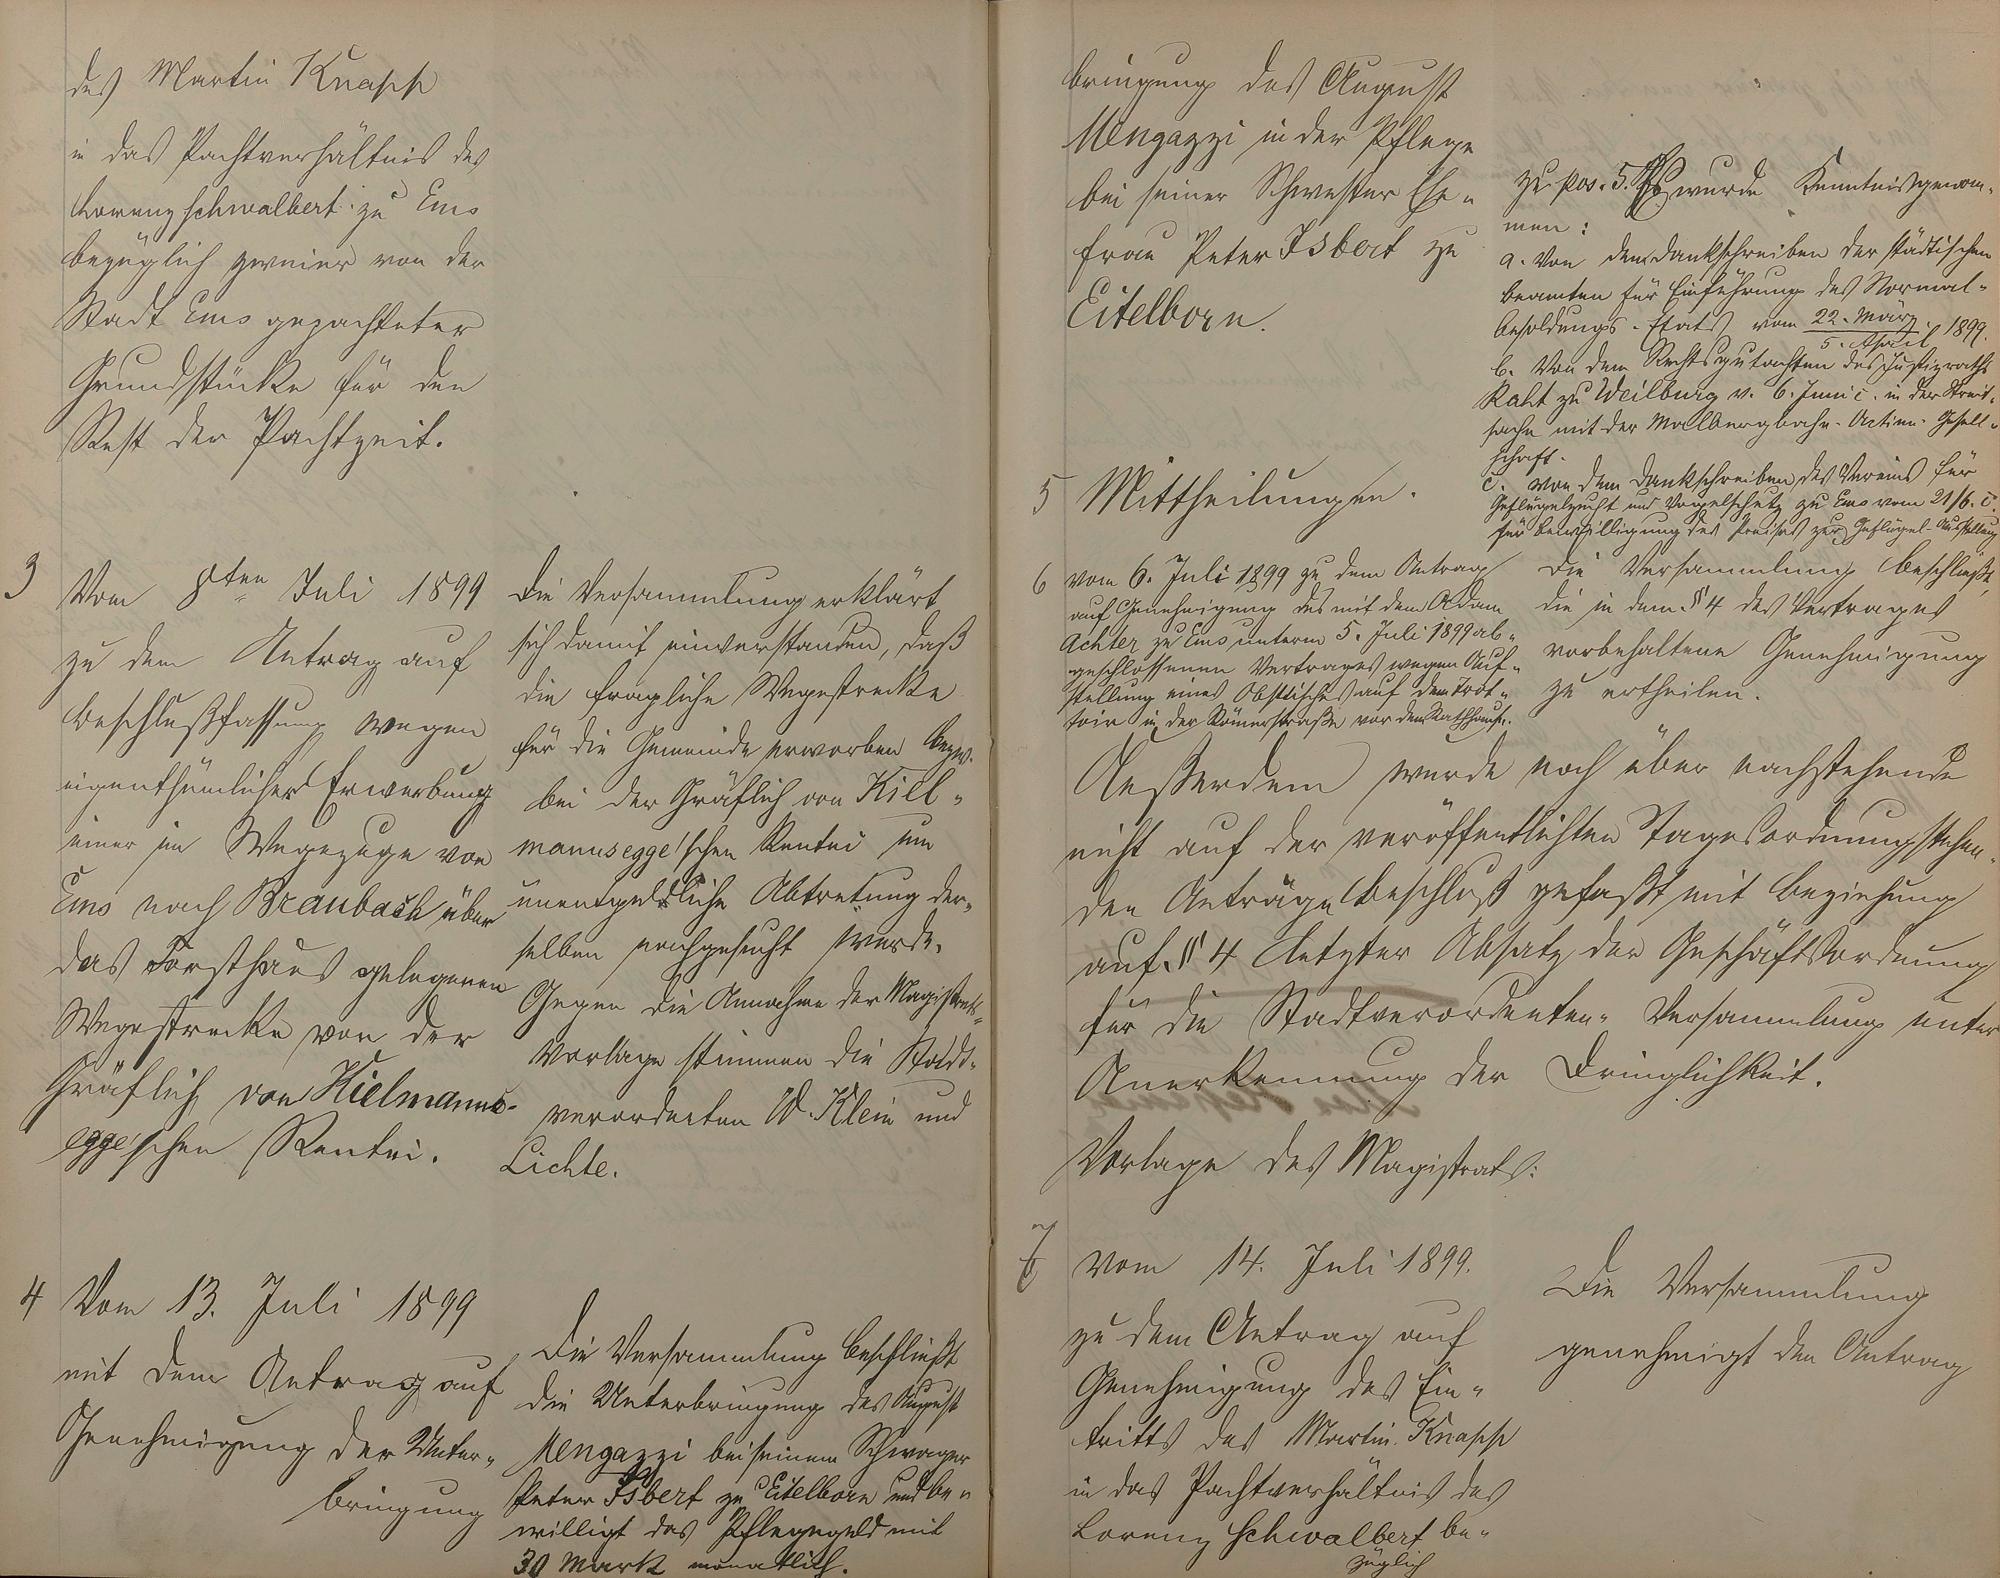 des Martin Knapp
in das Pachtverhältnis des
Lorenz Schwalbert zu Ems
bezüglich zweier von der
Stadt Ems gepachteter
Grundstücke für den
Rest der Pachtzeit.
3 Vom 8ten Juli 1899
zu dem Antrag auf
Beschlußfassung wegen
eigenthümlicher Erwerbung
einer im Wegezuge von
Ems nach Braubach über
das Forsthaus gelegenen
Wegestrecke von der
Gräflich von Kielmanns-
egge'schen Rentei.
Die Versammlung erklärt
sich damit einverstanden, daß
die fragliche Wegestrecke
für die Gemeinde erworben bezw.
bei der Gräflich von Kiel-
mannsegge'schen Rentei um
unentgeldliche Abtretung der-
selben nachgesucht werde.
Gegen die Annahme der Magistrats-
vorlage stimmen die Stadt-
verordneten W. Klein und
Lichte.
4 Vom 13. Juli 1899
mit dem Antrag auf
Genehmigung der Unter-
bringung
Die Versammlung beschließt
die Unterbringung des August
Mengazzi bei seinem Schwager
Peter Isbert zu Eitelborn und be-
willigt das Pflegegeld mit
30 Mark monatlich.
bringung des August
Mengazzi in der Pflege
bei seiner Schwester Ehe-
frau Peter Isbert zu
Eitelborn.
5 Mittheilungen.
zu pos. 5. Es wurde Kenntnis genom-
men:
a. Von dem Dankschreiben der städtischen
Beamten für Einführung des Normal-
besoldungs-Etats vom 22. März 1899.
5. April
b. Von dem Rechtsgutachten des Justizraths
Raht zu Weilburg v. 6. Juni c. in der Streit-
sache mit der Malbergbahn-Actien-Gesell-
schaft.
c. von dem Dankschreiben des Vereins für
Geflügelzucht und Vogelschutz zu Ems vom 21/6. c.
für Bewilligung des Preises zur Geflügel-Ausstellung
6 vom 6. Juli 1899 zu dem Antrag
auf Genehmigung des mit dem Adam
Achter zu Ems unterm 5. Juli 1899 ab-
geschlossenen Vertrages wegen Auf-
stellung eines Obsttisches auf dem Trot-
toir in der Römerstraße vor dem Rathhause.
Die Versammlung beschließt,
die in dem § 4 des Vertrages
vorbehaltene Genehmigung
zu ertheilen.
Außerdem wurde noch über nachstehende
nicht auf der veröffentlichten Tagesordnung stehen-
den Anträge Beschluß gefaßt mit Beziehung
auf § 4 letzter Absatz der Geschäftsordnung
für die Stadtverordneten-Versammlung unter
Anerkennung der Dringlichkeit.
Vorlage des Magistrats:
7 vom 14. Juli 1899.
zu dem Antrag auf
Genehmigung des Ein-
tritts des Martin Knapp
in das Pachtverhältnis des
Lorenz Schwalbert be-
züglich
Die Versammlung
genehmigt den Antrag